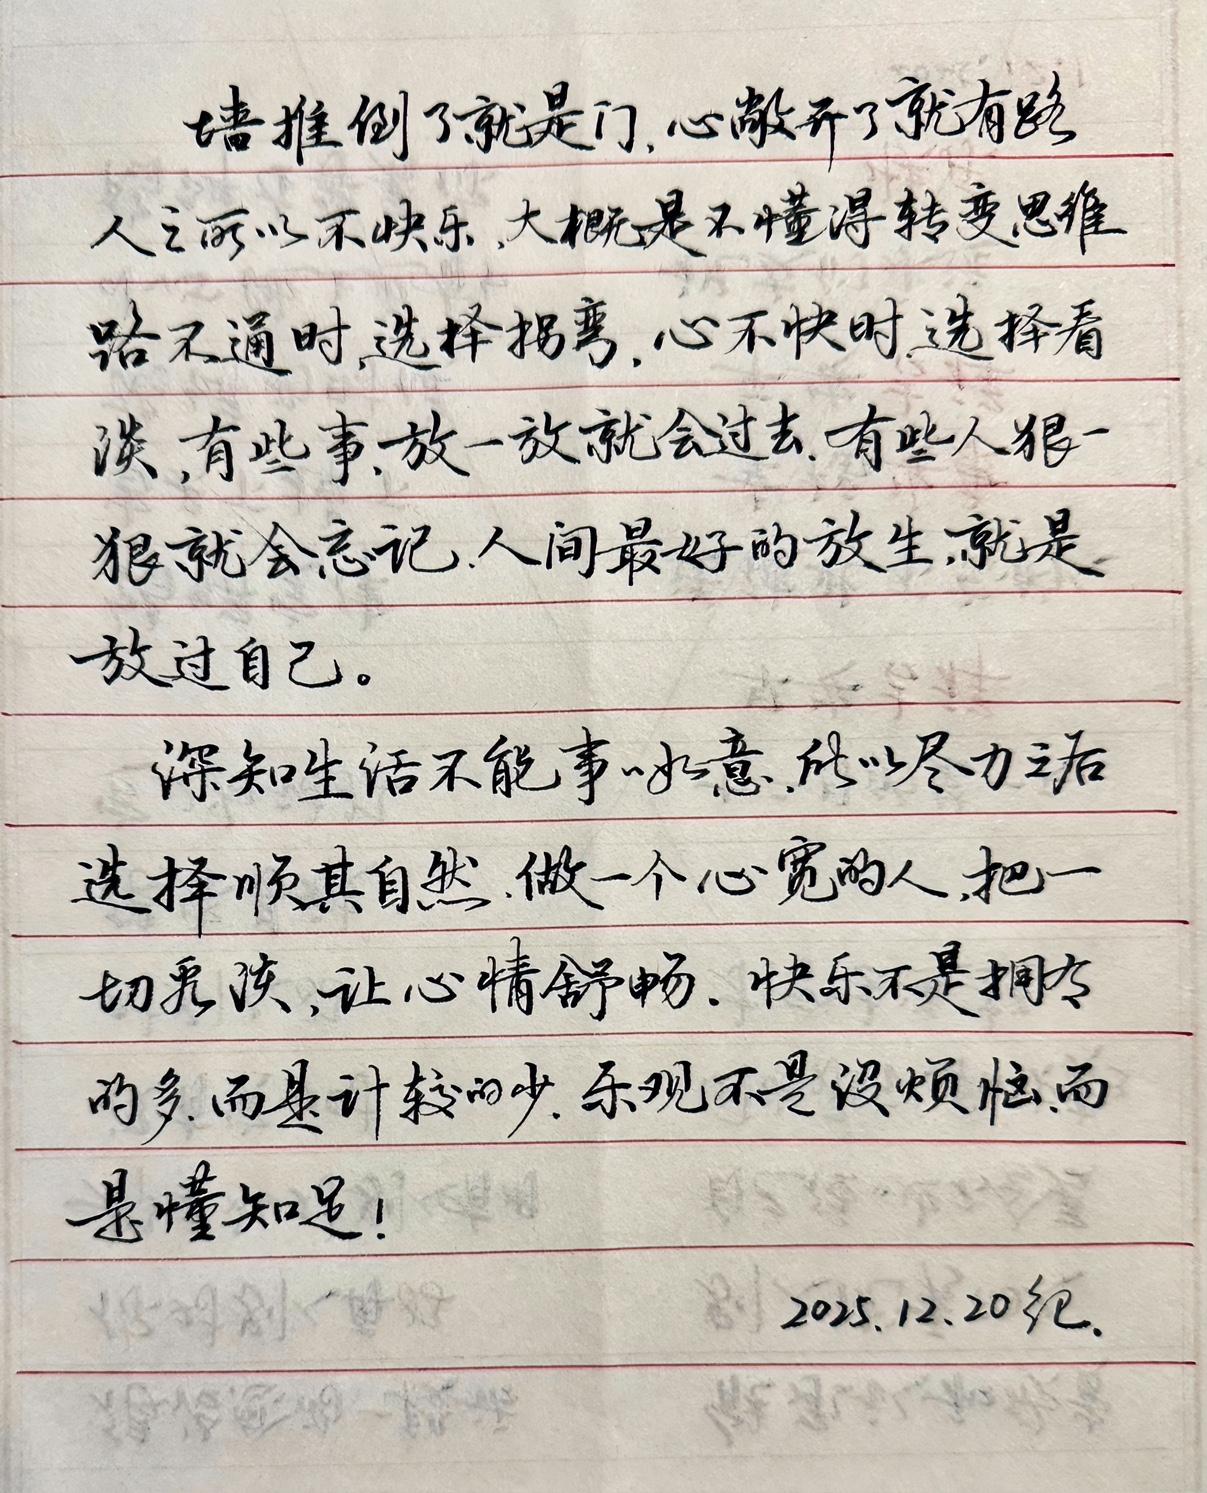 墙推倒了就是门,心敞开了就有路
人之所以不快乐,大概是不懂得转变思维
路不通时,选择拐弯,心不快时,选择看
淡,有些事,放一放就会过去,有些人狠一
狠就会忘记,人间最好的放生,就是
放过自己。
深知生活不能事事如意,所以尽力之后
选择顺其自然,做一个心宽的人,把一
切看淡,让心情舒畅.快乐不是拥有
的多,而是计较的少,乐观不是没烦恼,而
是懂知足!
2025.12.20纪.